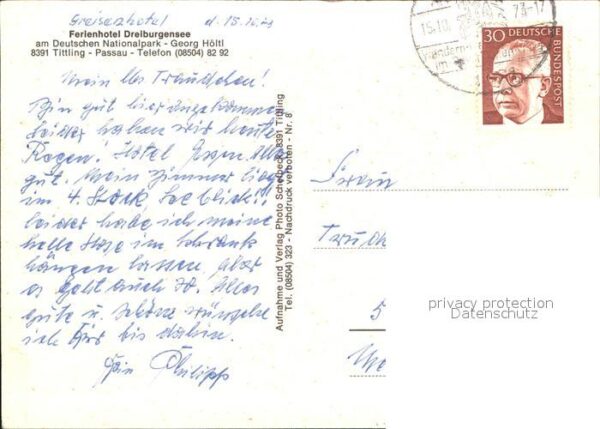 d. 15.10.
Ferienhotel Dreiburgensee
am Deutschen Nationalpark - Georg Höltl
8391 Tittling - Passau - Telefon (08504) 82 92
Mein lbs Traudchen!
Bin gut hier angekommen
Leider haben wir heute
Regen! Hotel Essen Alles
gut. Mein Zimmer liegt
im 4. Stock, Seeblick!!
leider habe ich meine
helle Hose im Schrank
hängen lassen, Aber
es geht auch so. Alles
gute u. Schöne wünsche
ich bis dahin.
Dein Philipp
Aufnahme und Verlag Photo Scherbeck 8391 Tittling
Tel. (08504) 323 - Nachdruck verboten - Nr. 8
15.10. 73-17
30 DEUTSCHE
BUNDESPOST
Frau
5
privacy protection
Datenschutz